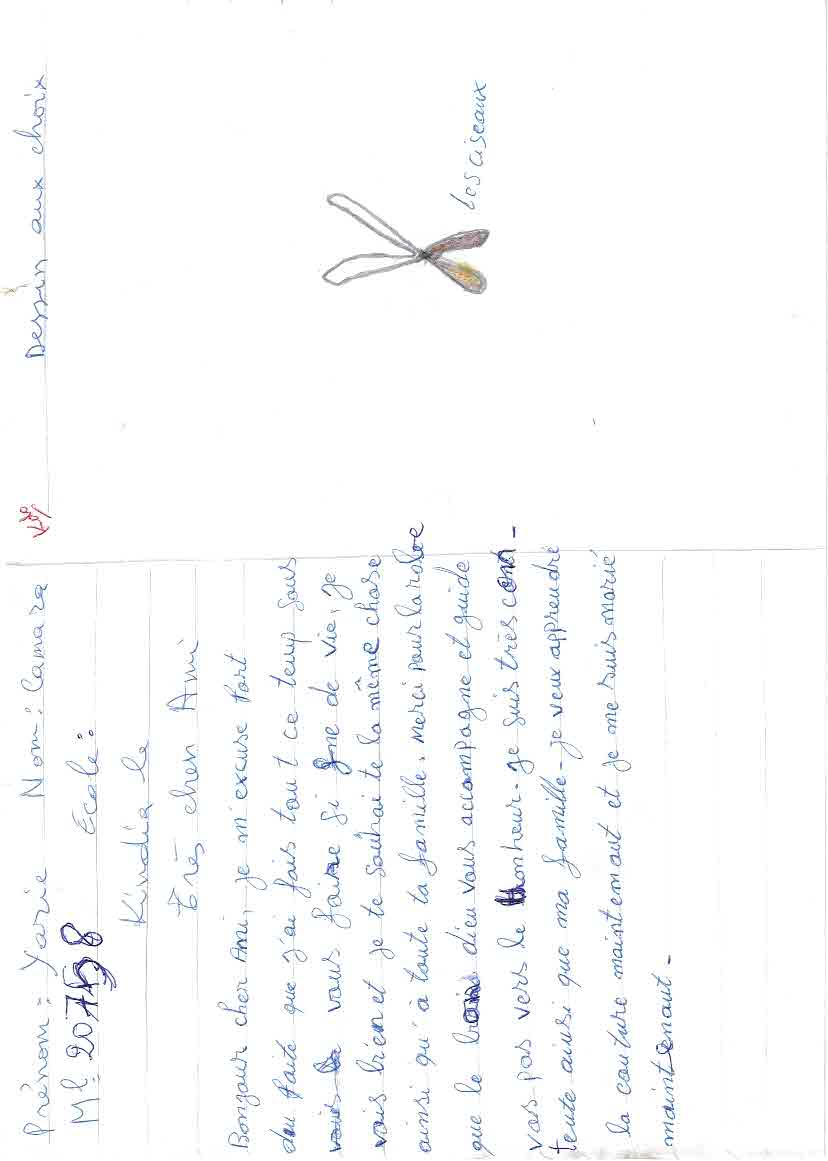 Prénom: Yarie Nom: Camara
Ml: École:
Kindia le
très cher Ami
Bonjour cher Ami, je m'excuse fort
du faite que j'ai fais tout ce temp sous
vous faire si gne de vie, je
vais bien et je te souhaite la même chose
ainsi qu'à toute ta famille. merci pour la robe
que le bon dieu vous accompagne et guide
vos pas vers le bonheur. je suis très con-
tente ainsi que ma famille - je veux apprendre
la couture maintenant et je me suis marié
maintenant -
Dessin aux choix
les ciseaux